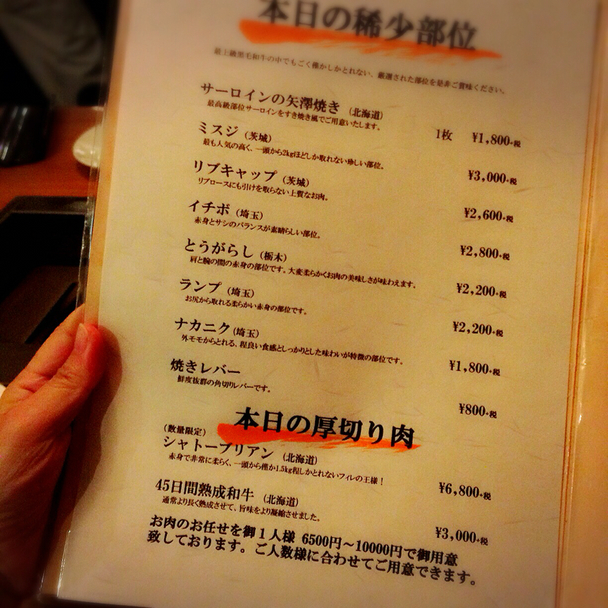 本日の稀少部位
最上級黒毛和牛の中でもごく僅かしかとれない、厳選された部位を是非ご賞味ください。
サーロインの矢澤焼き(北海道) 1枚 ¥1,800+税
最高級部位サーロインをすき焼き風でご用意いたします。
ミスジ(茨城) ¥3,000+税
最も人気の高く、一頭から2kgほどしか取れない珍しい部位。
リブキャップ(茨城) ¥2,600+税
リブロースにも引けを取らない上質なお肉。
イチボ(埼玉) ¥2,800+税
赤身とサシのバランスが素晴らしい部位。
とうがらし(栃木) ¥2,200+税
肩と腕の間の赤身の部位です。大変柔らかくお肉の美味しさが味わえます。
ランプ(埼玉) ¥2,200+税
お尻から取れる柔らかい赤身の部位です。
ナカニク(埼玉) ¥1,800+税
外モモからとれる、程良い食感としっかりとした味わいが特徴の部位です。
焼きレバー ¥800+税
鮮度抜群の角切りレバーです。
本日の厚切り肉
(数量限定)
シャトーブリアン(北海道) ¥6,800+税
赤身で非常に柔らく、一頭から僅か1.5kg程しかとれないフィレの王様!
45日間熟成和牛(北海道) ¥3,000+税
通常より長く熟成させて、旨味をより凝縮させました。
お肉のお任せを御1人様 6500円〜10000円で御用意
致しております。ご人数様に合わせてご用意できます。